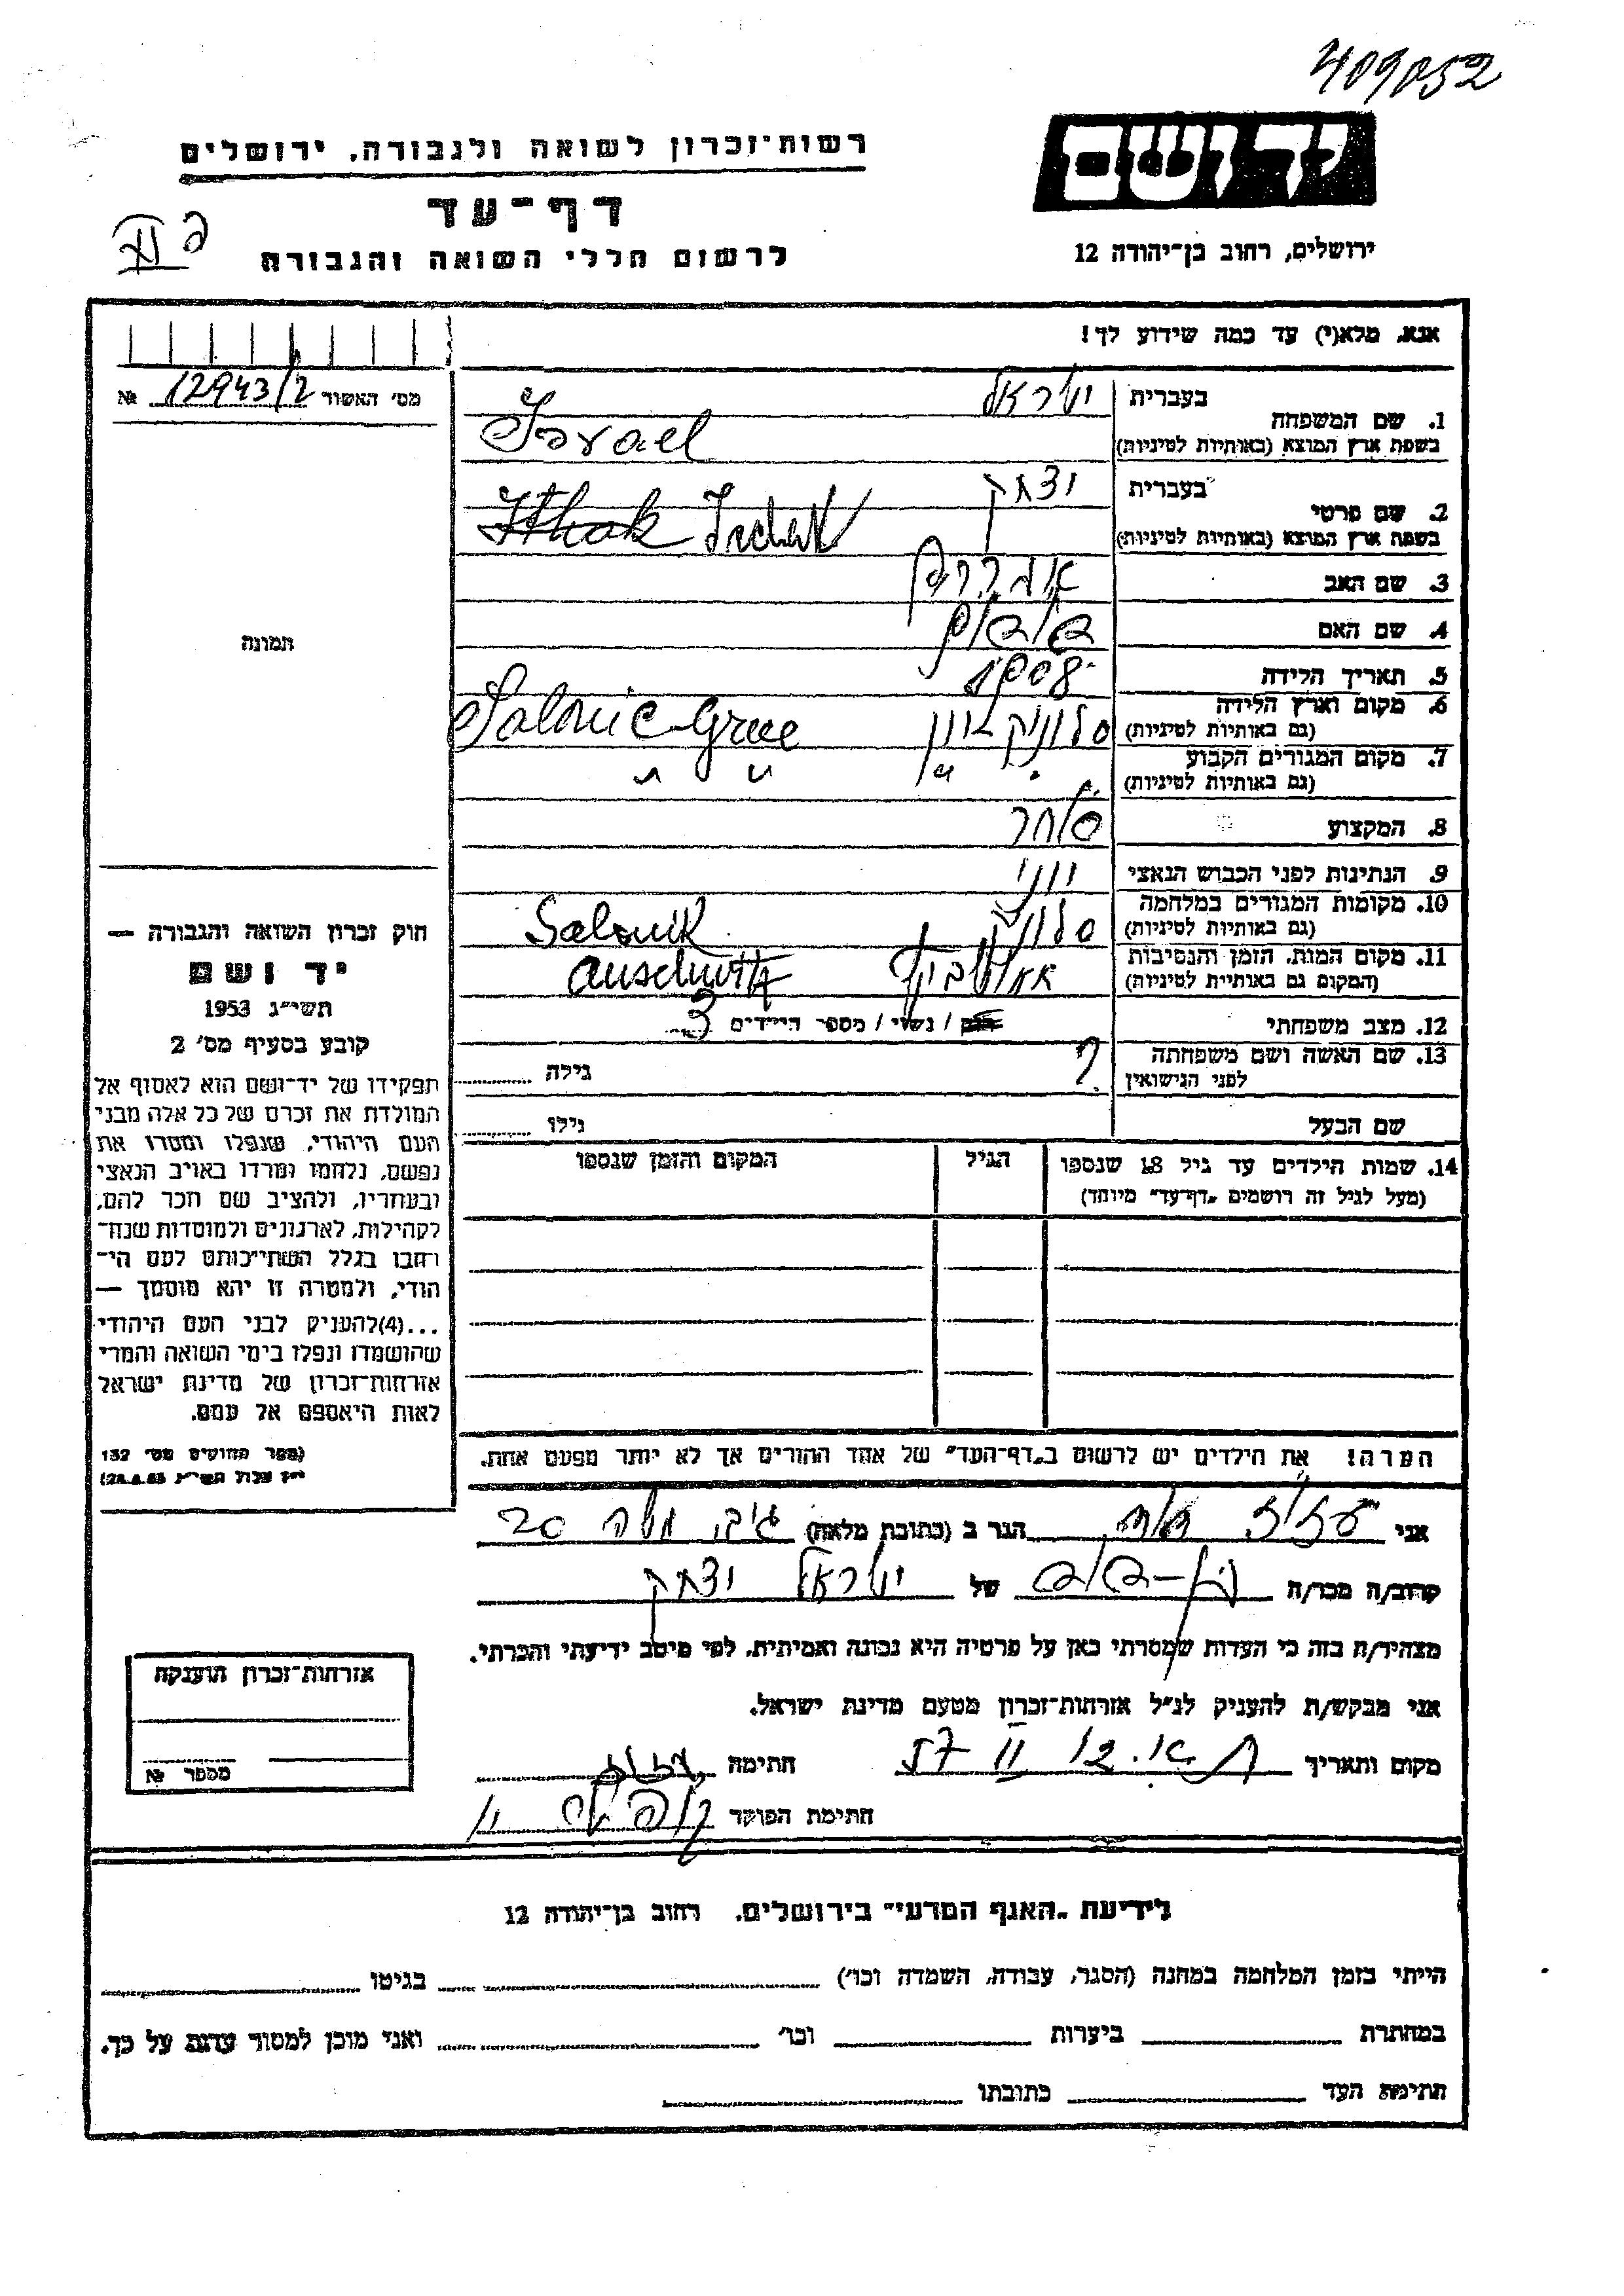 409052
רשות־זכרון לשואה ולגבורה, ירושלים
יד ושם
דף־עד
לרשום חללי השואה והגבורה
ירושלים, רחוב בן־יהודה 12
אנא, מלא(י) עד כמה שידוע לך!
מס' האשור 12943/2 №
1. שם המשפחה בעברית ישראל
בשפת ארץ המוצא (באותיות לטיניות) Israel
2. שם פרטי בעברית יצחק
בשפת ארץ המוצא (באותיות לטיניות) Ithak
3. שם האב אברהם
4. שם האם
5. תאריך הלידה 1908
6. מקום וארץ הלידה סלוניק יוון
(גם באותיות לטיניות) Salonic Grece
7. מקום המגורים הקבוע " " " "
(גם באותיות לטיניות)
8. המקצוע סוחר
9. הנתינות לפני הכבוש הנאצי יווני
10. מקומות המגורים במלחמה סלוניק
(גם באותיות לטיניות) Salonik
11. מקום המות, הזמן והנסיבות
(המקום גם באותיית לטיניות) Auschwitz
12. מצב משפחתי רווק / נשוי / מספר הילדים 3
13. שם האשה ושם משפחתה לפני הנישואין ? גילה
שם הבעל גילו
14. שמות הילדים עד גיל 18 שנספו
(מעל לגיל זה רושמים "דף־עד" מיוחד)
הגיל
המקום והזמן שנספו
הערה! את הילדים יש לרשום ב"דף־העד" של אחד ההורים אך לא יותר מפעם אחת.
תמונה
חוק זכרון השואה והגבורה —
יד ושם
תשי"ג 1953
קובע בסעיף מס' 2
תפקידו של יד־ושם הוא לאסוף אל
המולדת את זכרם של כל אלה מבני
העם היהודי, שנפלו ומסרו את
נפשם, נלחמו ומרדו באויב הנאצי
ובעוזריו, ולהציב שם וזכר להם,
לקהילות, לארגונים ולמוסדות שנח־
רחבו בגלל השתייכותם לעם הי־
הודי, ולמטרה זו יהא מוסמך —
...(4) להעניק לבני העם היהודי
שהושמדו ונפלו בימי השואה והמרי
אזרחות־זכרון של מדינת ישראל
לאות היאספם אל עמם.
(ספר החוקים מס' 132
אני הגר ב (כתובת מלאה) 20
קרוב/ה מכר/ה של ישראל יצחק
מצהיר/ה בזה כי העדות שמסרתי כאן על פרטיה היא נכונה ואמיתית, לפי מיטב ידיעתי והכרתי.
אני מבקש/ת להעניק לנ"ל אזרחות־זכרון מטעם מדינת ישראל.
מקום ותאריך ת"א. 12 II 57 חתימה
חתימת הפוקד
אזרחות־זכרון הוענקה
מספר №
לידיעת "האגף המדעי" בירושלים, רחוב בן־יהודה 12
הייתי בזמן המלחמה במחנה (הסגר, עבודה, השמדה וכו') בגיטו
במחתרת ביערות וכו' ואני מוכן למסור עדות על כך.
חתימת העד כתובתו